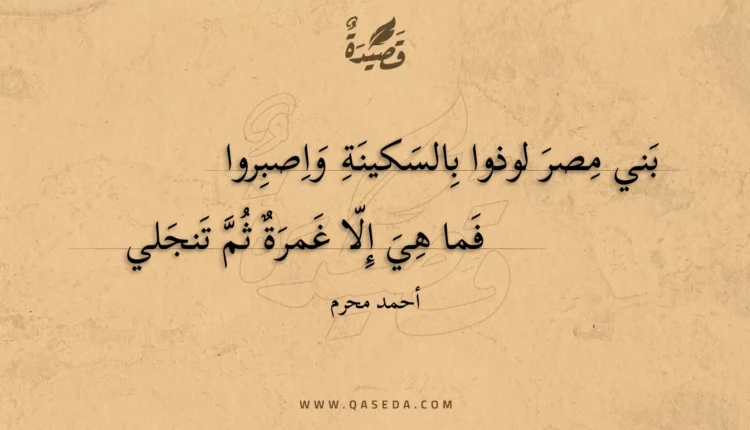 قَصِيْدَةٌ
بَني مِصرَ لوذوا بِالسَكينَةِ وَاِصبِروا
فَما هِيَ إِلّا غَمرَةٌ ثُمَّ تَنجَلي
أحمد محرم
WWW.QASEDA.COM